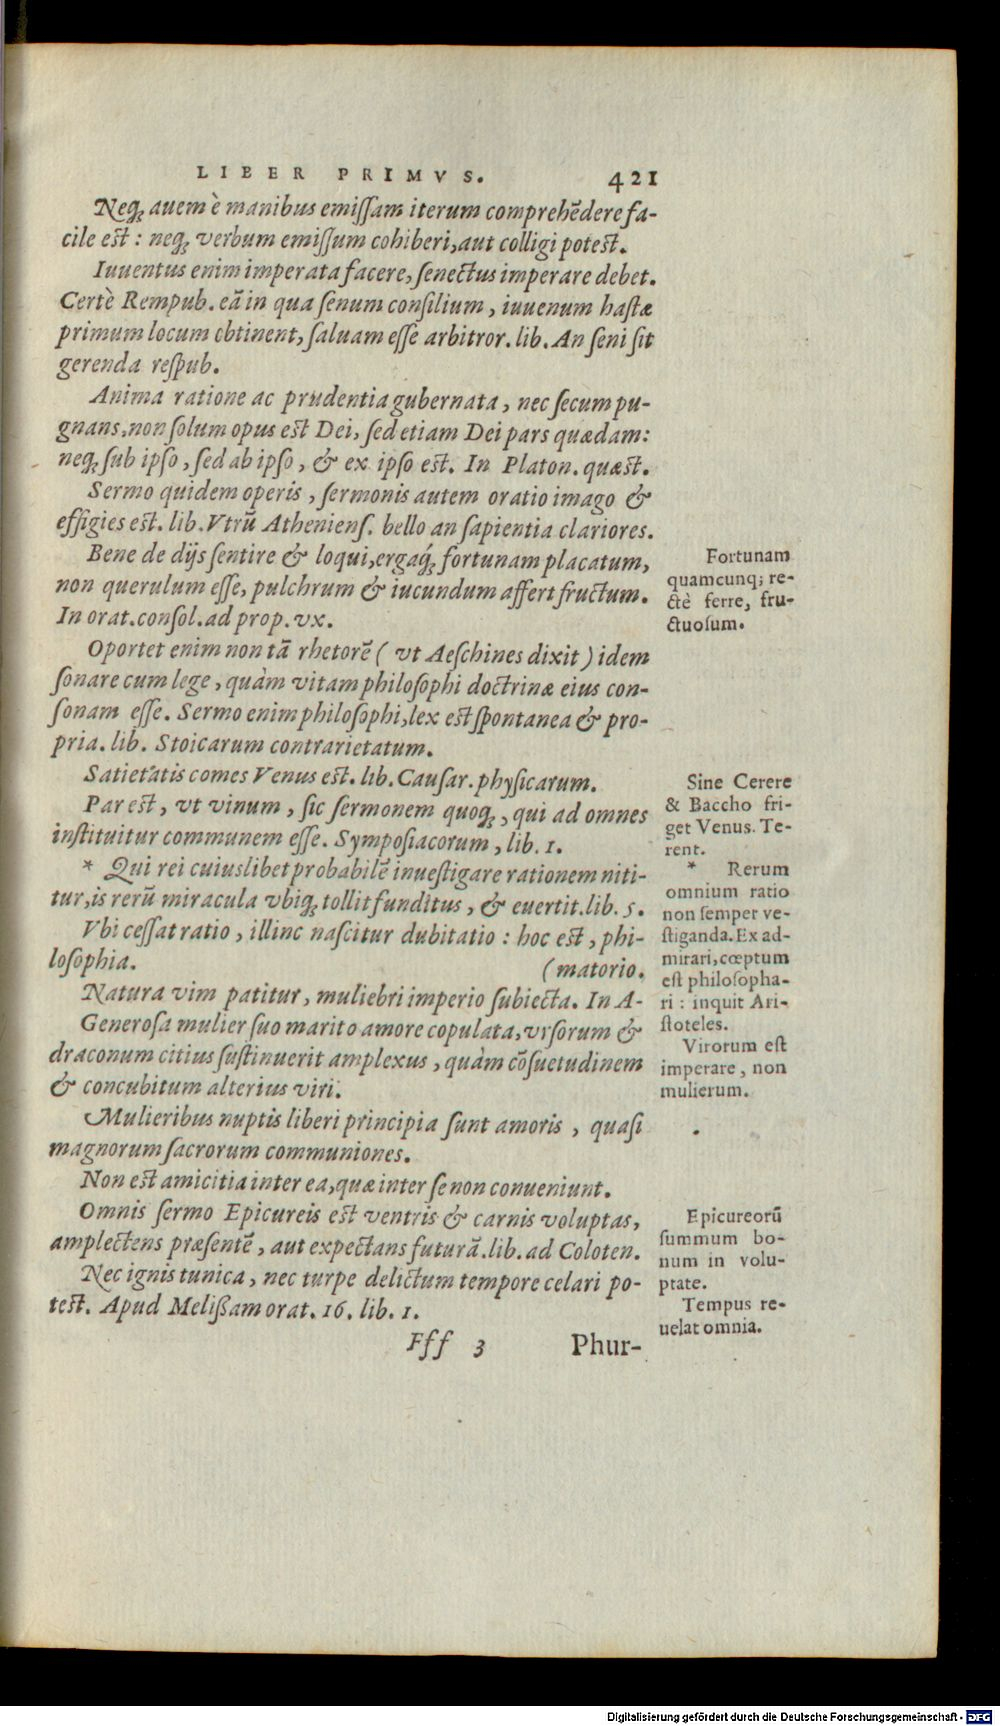 LIBER PRIMVS. 421
Neq; auem è manibus emiſſam iterum comprehēdere fa-
cile eſt : neq; verbum emiſſum cohiberi, aut colligi poteſt.
Iuuentus enim imperata facere, ſenectus imperare debet.
Certè Rempub. eā in qua ſenum conſilium, iuuenum haſtæ
primum locum obtinent, ſaluam eſſe arbitror. lib. An ſeni ſit
gerenda reſpub.
Anima ratione ac prudentia gubernata, nec ſecum pu-
gnans, non ſolum opus eſt Dei, ſed etiam Dei pars quædam:
neq; ſub ipſo, ſed ab ipſo, & ex ipſo eſt. In Platon. quæſt.
Sermo quidem operis, ſermonis autem oratio imago &
effigies eſt. lib. Vtrū Athenienſ. bello an ſapientia clariores.
Bene de dijs ſentire & loqui, ergaq́; fortunam placatum,
non querulum eſſe, pulchrum & iucundum affert fructum.
In orat. conſol. ad prop. vx.
Fortunam
quamcunq; re-
ctè ferre, fru-
ctuoſum.
Oportet enim non tā rhetorē ( vt Aeſchines dixit ) idem
ſonare cum lege, quàm vitam philoſophi doctrinæ eius con-
ſonam eſſe. Sermo enim philoſophi, lex eſt ſpontanea & pro-
pria. lib. Stoicarum contrarietatum.
Satietatis comes Venus eſt. lib. Cauſar. phyſicarum.
Par eſt, vt vinum, ſic ſermonem quoq;, qui ad omnes
inſtituitur communem eſſe. Sympoſiacorum, lib. 1.
Sine Cerere
& Baccho fri-
get Venus. Te-
rent.
* Qui rei cuiuslibet probabilē inueſtigare rationem niti-
tur, is rerū miracula vbiq; tollit funditus, & euertit. lib. 5.
Vbi ceſſat ratio, illinc naſcitur dubitatio : hoc eſt, phi-
loſophia. (matorio.
Natura vim patitur, muliebri imperio ſubiecta. In A-
* Rerum
omnium ratio
non ſemper ve-
ſtiganda. Ex ad-
mirari, cœptum
eſt philoſopha-
ri : inquit Ari-
ſtoteles.
Generoſa mulier ſuo marito amore copulata, vrſorum &
draconum citius ſuſtinuerit amplexus, quàm cōſuetudinem
& concubitum alterius viri.
Virorum eſt
imperare, non
mulierum.
Mulieribus nuptis liberi principia ſunt amoris, quaſi
magnorum ſacrorum communiones.
Non eſt amicitia inter ea, quæ inter ſe non conueniunt.
Omnis ſermo Epicureis eſt ventris & carnis voluptas,
amplectens præſentē, aut expectans futurā. lib. ad Coloten.
Nec ignis tunica, nec turpe delictum tempore celari po-
teſt. Apud Melißam orat. 16. lib. 1.
Epicureorū
ſummum bo-
num in volu-
ptate.
Tempus re-
uelat omnia.
Fff 3 Phur-
Digitalisierung gefördert durch die Deutsche Forschungsgemeinschaft - DFG